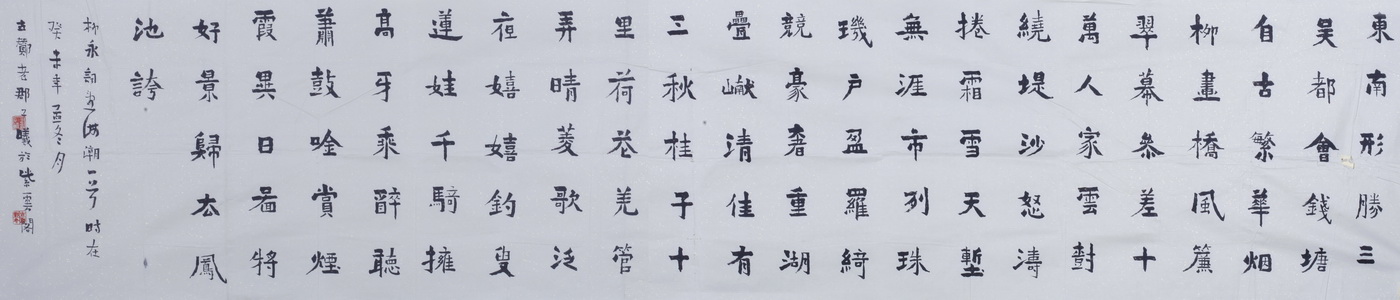 東南形勝三
吴都會錢塘
自古繁華烟
柳畫橋風簾
翠幕參差十
萬人家雲尌
繞堤沙怒濤
捲霜雪天塹
無涯市列珠
璣户盈羅綺
競豪奢重湖
疊巘清佳有
三秋桂子十
里荷花羌管
弄晴菱歌泛
夜嬉嬉釣叟
蓮娃千騎擁
高牙乘醉聽
蕭鼓唫賞煙
霞異日圖將
好景歸去鳳
池誇
柳永詞望海潮一首時在
癸未年孟冬月
古鄭老那子曦於紫雲閣